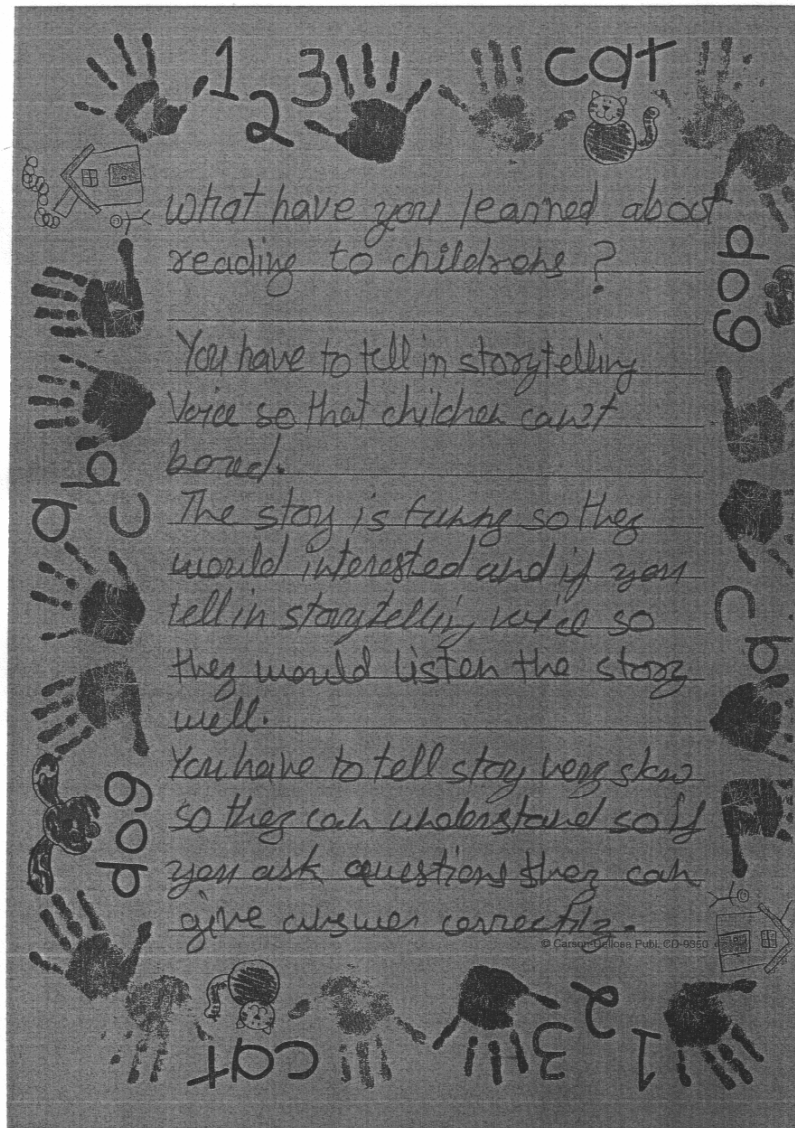 1 2 3 cat
What have you learned about
reading to childrens ?
dog
You have to tell in storytelling
Voice so that children can't
bored.
a b c
The story is funny so they
would interested and if you
tell in storytelling voice so
they would listen the story
well.
c b
You have to tell story very slow
so they can understand so if
dog
you ask questions they can
give answer correctly.
© Carson-Dellosa Publ. CD-9360
cat 3 2 1